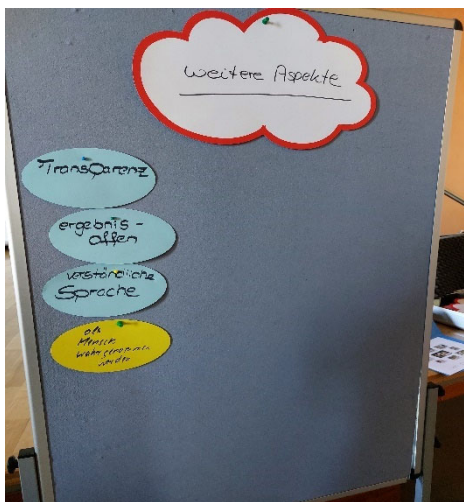 weitere Aspekte
Transparenz
ergebnis-
offen
verständliche
Sprache
als
Mensch
wahrgenommen
werden